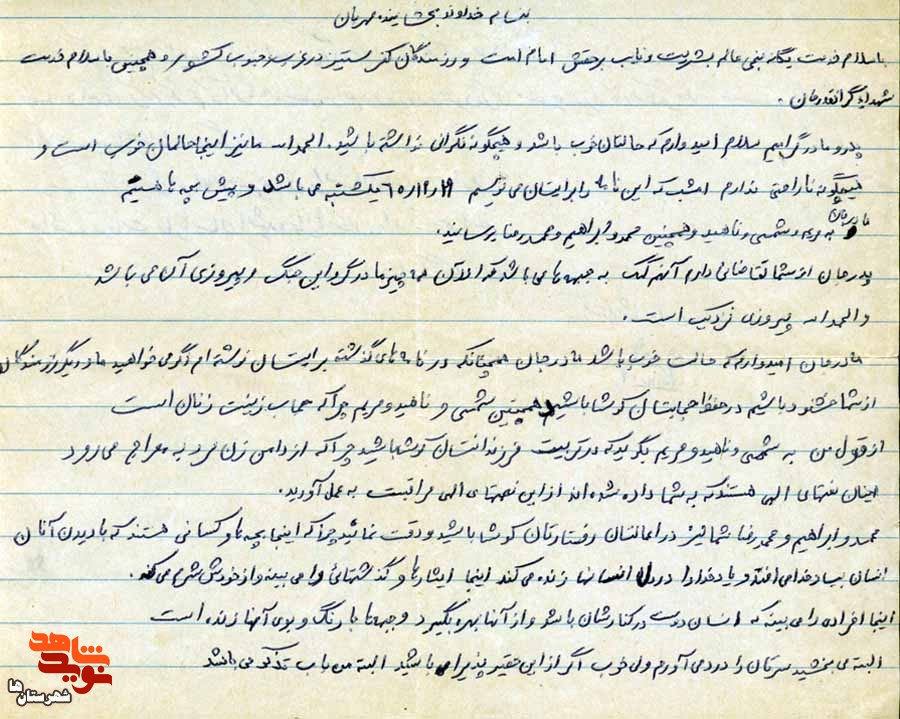 بنام خداوند بخشاینده مهربان
با سلام خدمت یگانه منجی عالم بشریت و نایب برحقش امام امت و رزمندگان کفر ستیز در غرب و جنوب کشور و همچنین با سلام خدمت
شهدای گرانقدرمان .
پدر و مادر گرامیم سلام امیدوارم که حالتان خوب باشد و هیچگونه نگرانی نداشته باشید . الحمدالله ما نیز اینجا حالمان خوب است و
هیچگونه ناراحتی ندارم امشب که این نامه را برایتان می نویسم ۶۵ یکشنبه می باشد و پیش بچه ها هستیم
به مریم و شمسی و ناهید و همچنین محمد و ابراهیم و محمدرضا برسانید .
پدرجان از شما تقاضائی دارم آنهم کمک به جبهه ها می باشد که الآن همه چیز ما در گرو این جنگ و پیروزی آن می باشد
و الحمدالله پیروزی نزدیک است .
مادرجان امیدوارم که حالت خوب باشد مادرجان همچنانکه در نامه های گذشته برایتان نوشته ام اگر می خواهید ما و دیگر رزمندگان
از شما خشنود باشیم در حفظ حجابتان کوشا باشید همچنین شمسی و ناهید و مریم چرا که حجاب زینت زنان است
از قول من به شمسی و ناهید و مریم بگوئید که در تربیت فرزندانتان کوشا باشید چرا که از دامن زن مرد به معراج می رود
اینان نعمتهای الهی هستند که به شما داده شده اند از این نعمتهای الهی مراقبت به عمل آورید .
محمد و ابراهیم و محمدرضا شما نیز در اعمالتان رفتارتان کوشا باشید و دقت نمائید چرا که اینجا بچه ها و کسانی هستند که با دیدن آنان
انسان بیاد خدا می افتد و یاد خدا را در دل انسانها زنده می کند اینجا ایثارها و گذشتهائی را می بیند و از خودش شرم می کند .
اینجا افرادی را می بیند که انسان دوست در کنارشان باشد و از آنها بهره بگیرد و جبهه ها با رنگ و بوی آنها زنده است
البته می بخشید سرتان را درد می آورم ولی خوب اگر از این حقیر پذیرا باشید البته من باب تذکر می باشد
نوید شاهد
شهرستان‌ها